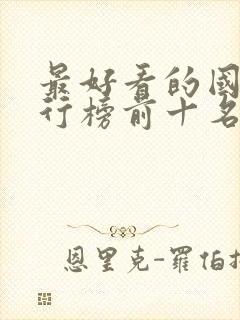 最好看的國
行榜前十名
恩里克-羅伯抋